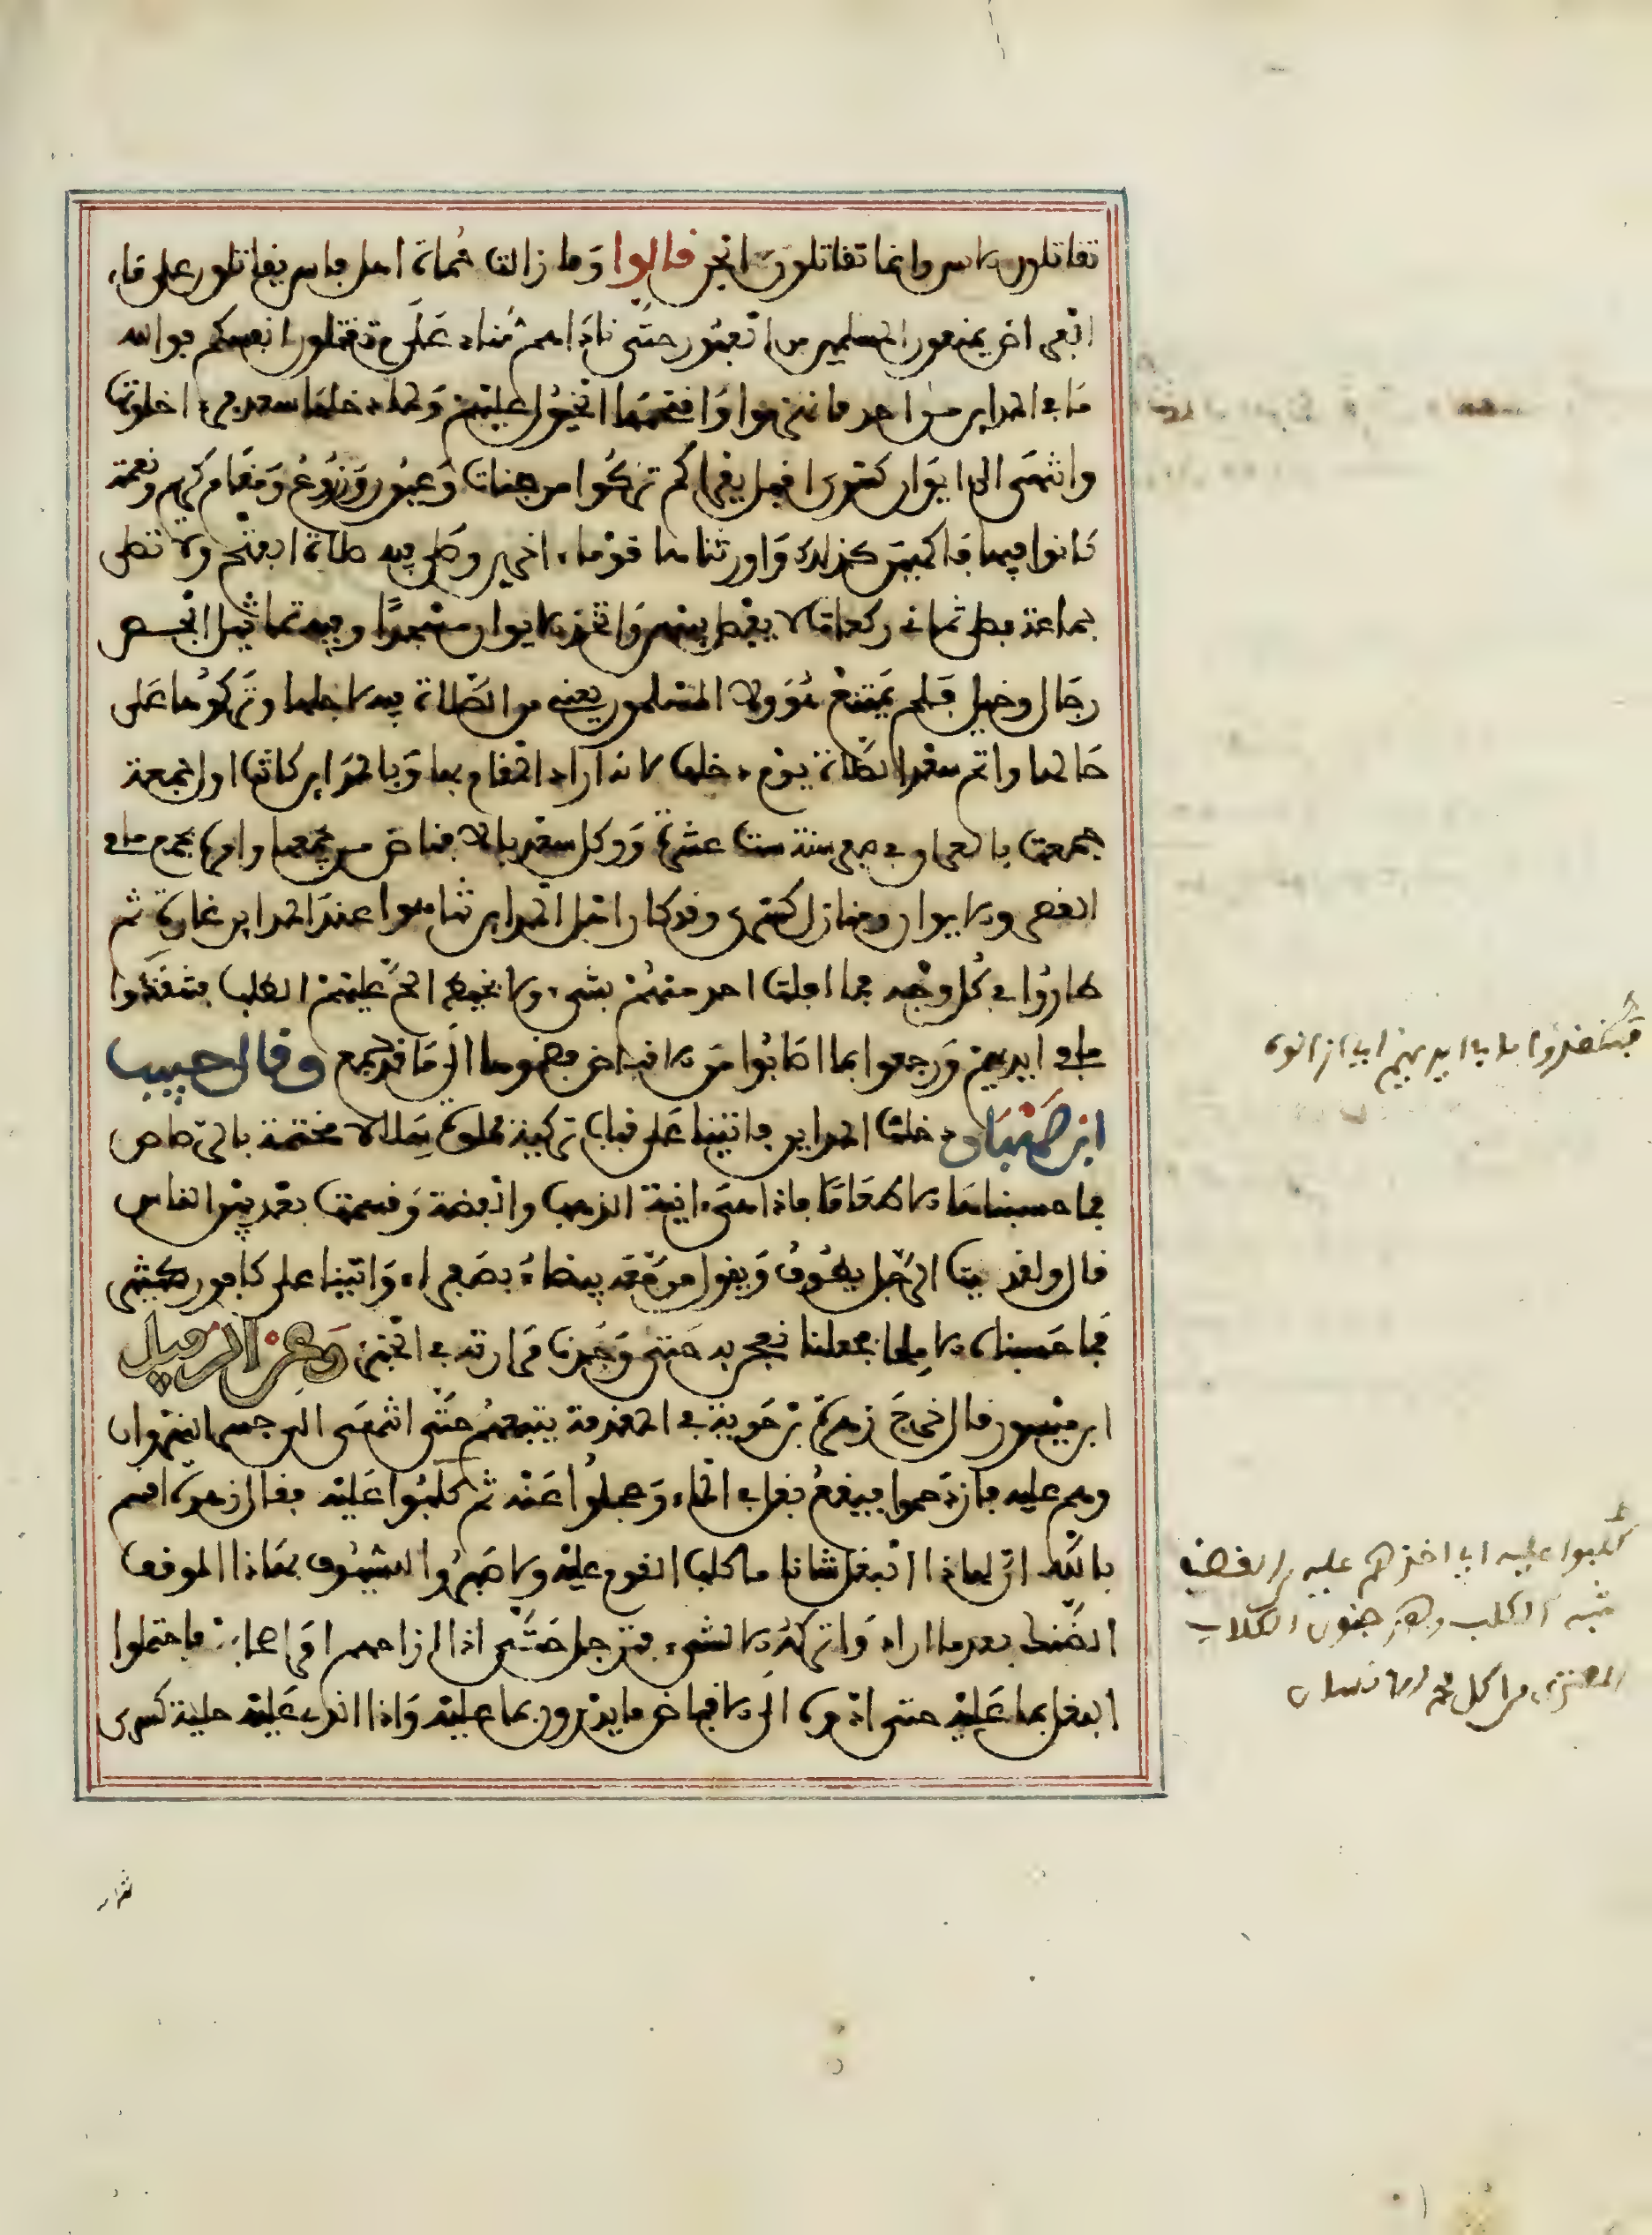 تقاتلون الانس وانما تقاتلون الجن قالوا وما زالت حماة اهل فارس يقاتلون على ماء
الفراض يمنعون المسلمين من العبور حتى ناداهم مناد علام تقتلون انفسكم فوالله
ما في المداين من احد فانهزموا واقتحمتها الخيول عليهم ولما دخلها سعد فرءا خلوتها
وانتهى الى ايوان كسرى اقبل يقرا كم تركوا من جنات وعيون وزروع ومقام كريم ونعمة
كانوا فيها فاكهين كذلك واورثناها قوما ءاخرين وصلى فيه صلاة الفتح ولا تصلى
جماعة فصلى ثماني ركعات لا يفصل بينهن واتخذ الايوان مسجدا وفيه تماثيل الجص
رجال وخيل فلم يمتنع هو ولا المسلمون يعني من الصلاة فيه لاجلها وتركوها على
حالها واتم سعد الصلاة يوم دخلها لانه اراد المقام بها وبالمداين كانت اول جمعة
جمعت بالعراق في صفر سنة ست عشرة ووكل سعد بالاقباض من يجمعها وامره بجمع ما في
القصر والايوان ومنازل كسرى وقد كان اهل المداين تناهبوا عند المداين غارة ثم
طاروا في كل وجه فما افلت احد منهم بشيء ولا بخيط الح عليهم الطلب فتنقذوا
ما في ايديهم ورجعوا بما اصابوا من الاقباض فضموها الى ما قد جمع وقال حبيب
ابن صهبان دخلنا المداين فاتينا على قباب تركية مملوة سلالا مختمة بالرصاص
فما حسبناها الا طعاما فاذا هي ءانية الذهب والفضة وقسمت بعد بين الناس
قال ولقد رأيت الرجل يطوف ويقول من معه بيضاء بصفراء واتينا على كافور كثير
فما حسبناه الا ملحا فجعلنا نعجن به حتى وجدنا مرارته في الخبز وعن الرفيل
ابن ميسور قال خرج زهرة بن حوية في المقدمة يتبعهم حتى انتهى الى جسر النهروان
وهم عليه فازدحموا فوقع بغل في الماء وعجلوا عنه ثم كلبوا عليه فقال زهرة اقسم
بالله ان لهاذا البغل شانا ما كلب القوم عليه ولا صبروا للسيوف بهاذا الموقف
الضنك بعد ما اراد واتركوه الا لشيء فترجل حتى اذا ازاحهم امر اصحابه فاحتملوا
البغل بما عليه حتى ادوه الى الاقباض ما يدرون بما عليه واذا الذي عليه حلية كسرى
فتنقذوا ما بايديهم اي ازالوه
كلبوا عليه اي اخذهم عليه الغضب
شبه الكلب وهو جنون الكلاب
المعتري من اكل لحم الانسان